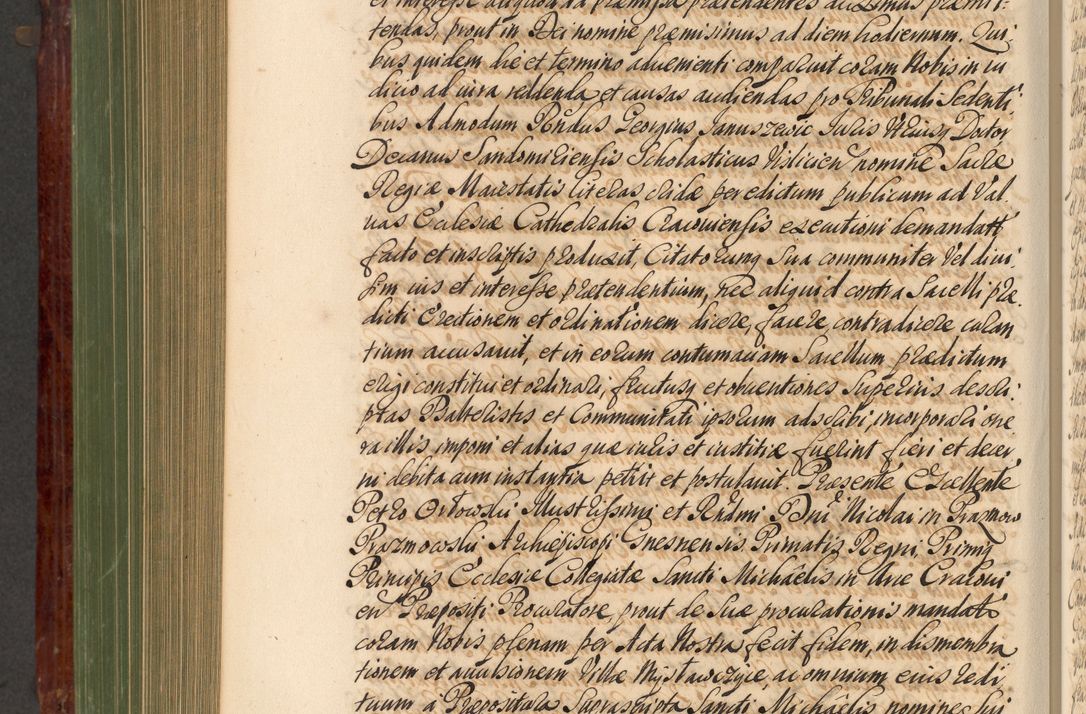 et interesse aliquod ta præmissa prætendentes ad Imus præmit-
tendas, prout in Dei nomine præmisimus ad diem hodiernum. Qui-
bus quidem die et termino advenienti comparuit coram Nobis in iu
dicio ad iura reddenda et causas audiendas pro Tribunali Sedenti
bus Admodum Rndus Georgius Januszewic Juris Utriusq Doctor
Decanus Sandomiriensis Scholasticus Vislicien nomine Sacræ
Regiæ Maiestatis literas cridæ per edictum publicum ad Val
uas Ecclesiæ Cathedralis Cracouiensis executioni demandati
facto et inscriptis produxit, Citatorumq Sua communiter Vel diui
sim ius et interesse prætendentium, nec aliquid contra Sacelli præ
dicti Erectionem et ordinationem dicere, facere, contradicere curan
tium accusauit, et in eorum contumaciam Sacellum prædictum
erigi constitui et ordinari, fructusq et obuentiones Superius descri
ptas Psalteristis et Communitati ipsorum adscribi, incorporari one
ra illis imponi et alias quæ iuris et iustitiæ fuerint fieri et decer
ni debita cum instantia petiit et postulauit. Præsente Excellente
Petro Orłowski Illustrissimi et Rndmi Dni Nicolai in Prazmow
Prazmowski Archiepiscopi Gnesnensis Primatis Regni, Primiq
Principis Ecclesiæ Collegiatæ Sancti Michaelis in Arce Cracoui
en Præpositi Procuratore, prout de Suæ procurationis mandato
coram Nobis plenam per Acta Nostra fecit fidem, in dismembra
tionem et auulsionem Villæ Mysławczyce, ac omnium eius redi
tuum a Præpositura Suprascripta Sancti Michaelis nomine Sui